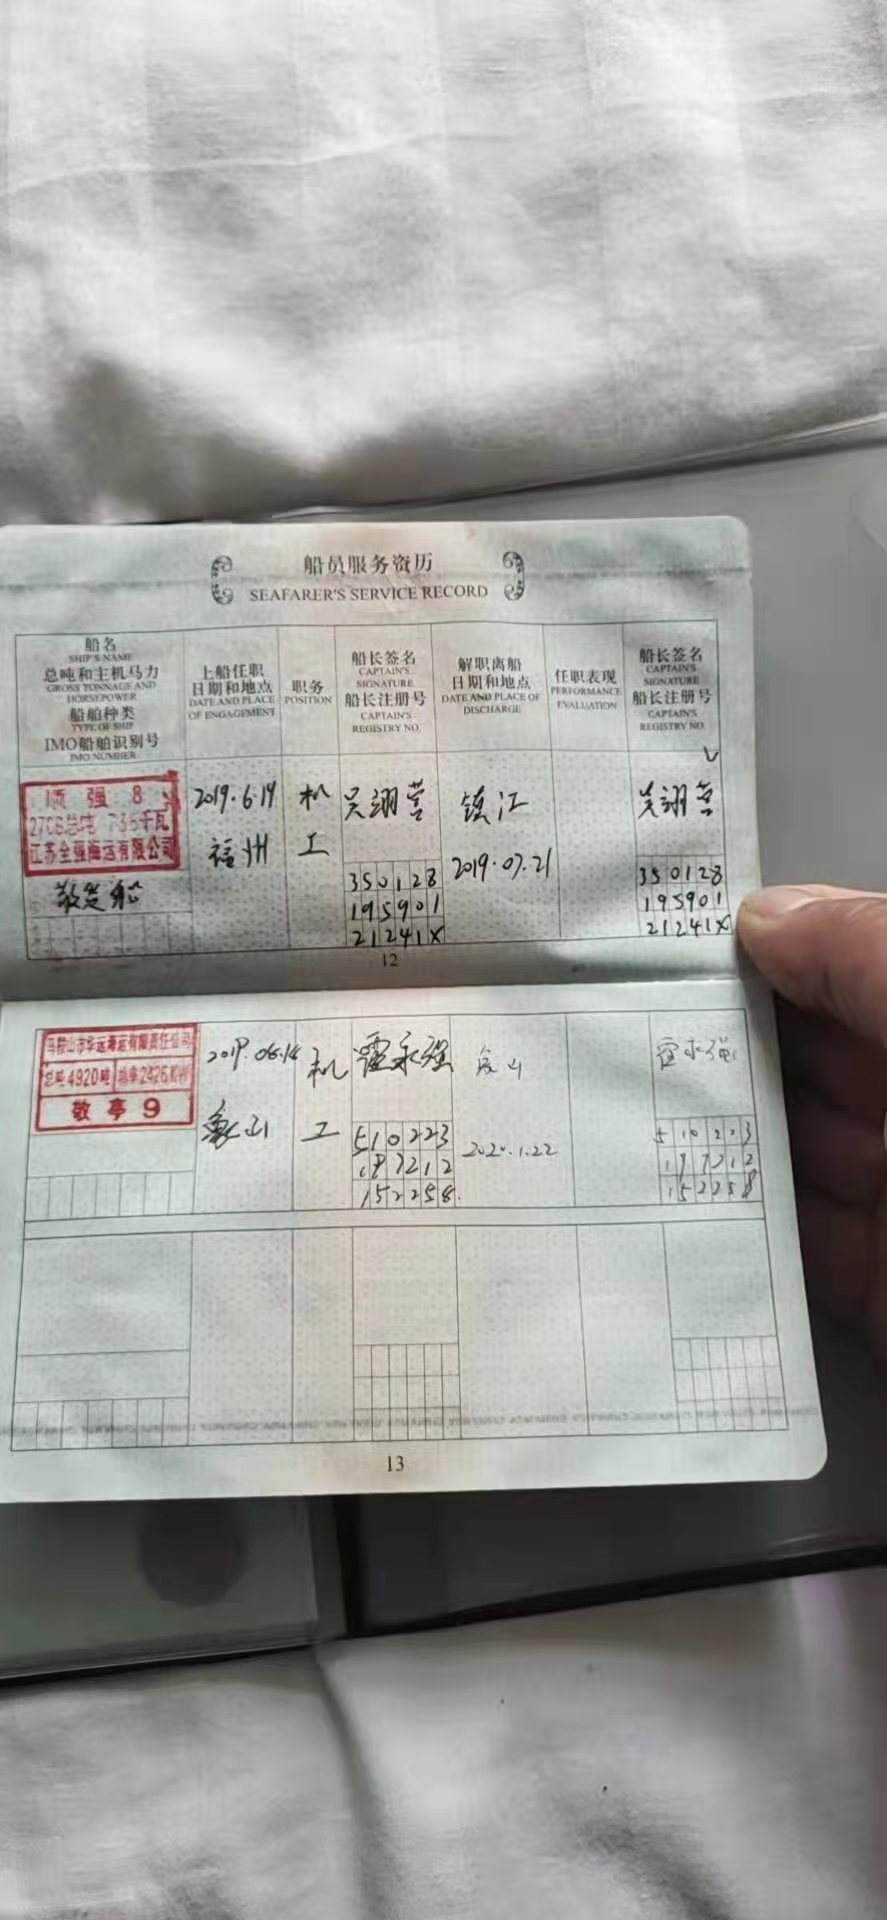 船员服务资历
SEAFARER'S SERVICE RECORD
船名
SHIP'S NAME
总吨和主机马力
GROSS TONNAGE AND
HORSEPOWER
船舶种类
TYPE OF SHIP
IMO船舶识别号
IMO NUMBER
上船任职
日期和地点
DATE AND PLACE
OF ENGAGEMENT
职务
POSITION
船长签名
CAPTAIN'S
SIGNATURE
船长注册号
CAPTAIN'S
REGISTRY NO.
解职离船
日期和地点
DATE AND PLACE OF
DISCHARGE
任职表现
PERFORMANCE
EVALUATION
船长签名
CAPTAIN'S
SIGNATURE
船长注册号
CAPTAIN'S
REGISTRY NO.
强 8
总吨 千瓦
江苏全强海运有限公司
船
福州
机
工
吴翊营
350128
195901
21241X
镇江
2019.07.21
吴翊营
350128
195901
21241X
12
马鞍山市华运海运有限责任公司
总吨4920吨 功率2426KW
敬亭9
象山
机
工
霍永强
510223
152258
2020.1.22
霍永强
13